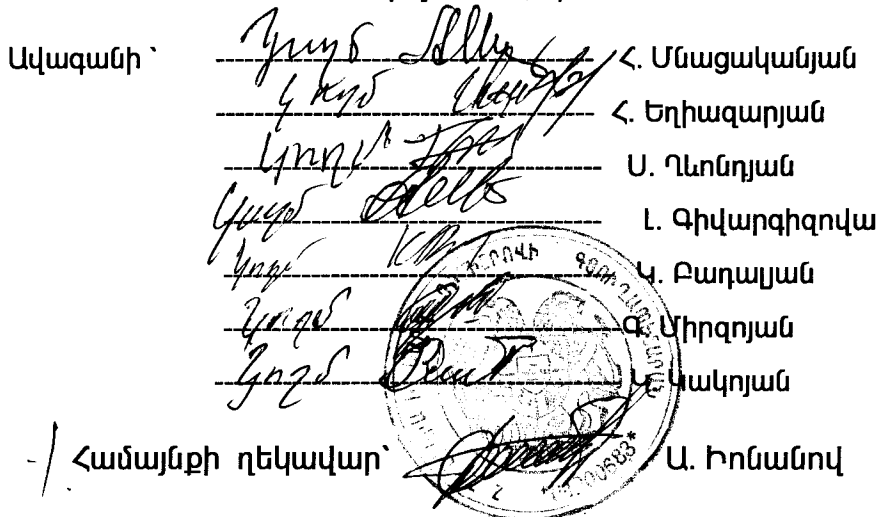 Ավագանի ՝ կողմ Հ. Մնացականյան
կողմ Հ. Եղիազարյան
կողմ Ս. Ղևոնդյան
կողմ Լ. Գիվարգիզովա
կողմ Կ. Բադալյան
կողմ Գ. Միրզոյան
կողմ Կ. Կակոյան
Համայնքի ղեկավար՝ Ա. Իոնանով